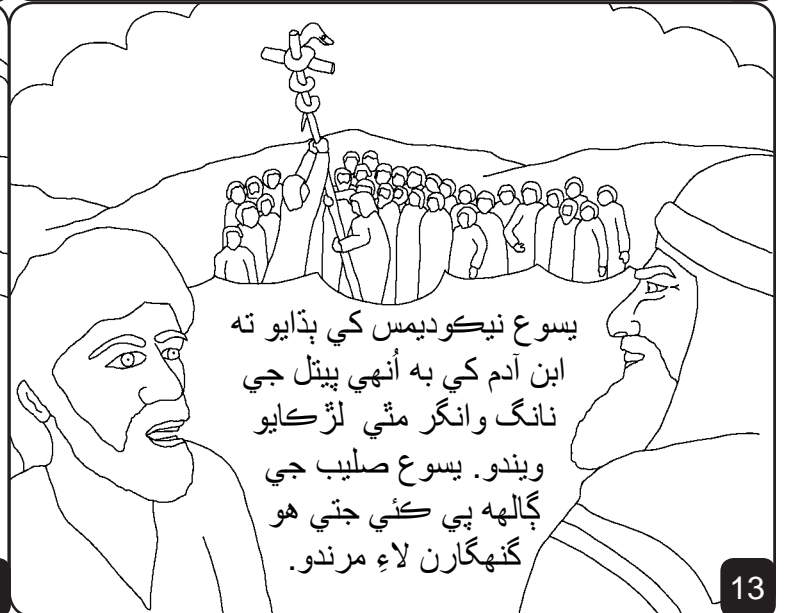 يسوع نيڪوديمس کي ٻڌايو ته
ابن آدم کي به اُنهي پيتل جي
نانگ وانگر مٿي لڙڪايو
ويندو. يسوع صليب جي
ڳالهه پي ڪئي جتي هو
گنهگارن لاءِ مرندو.
13